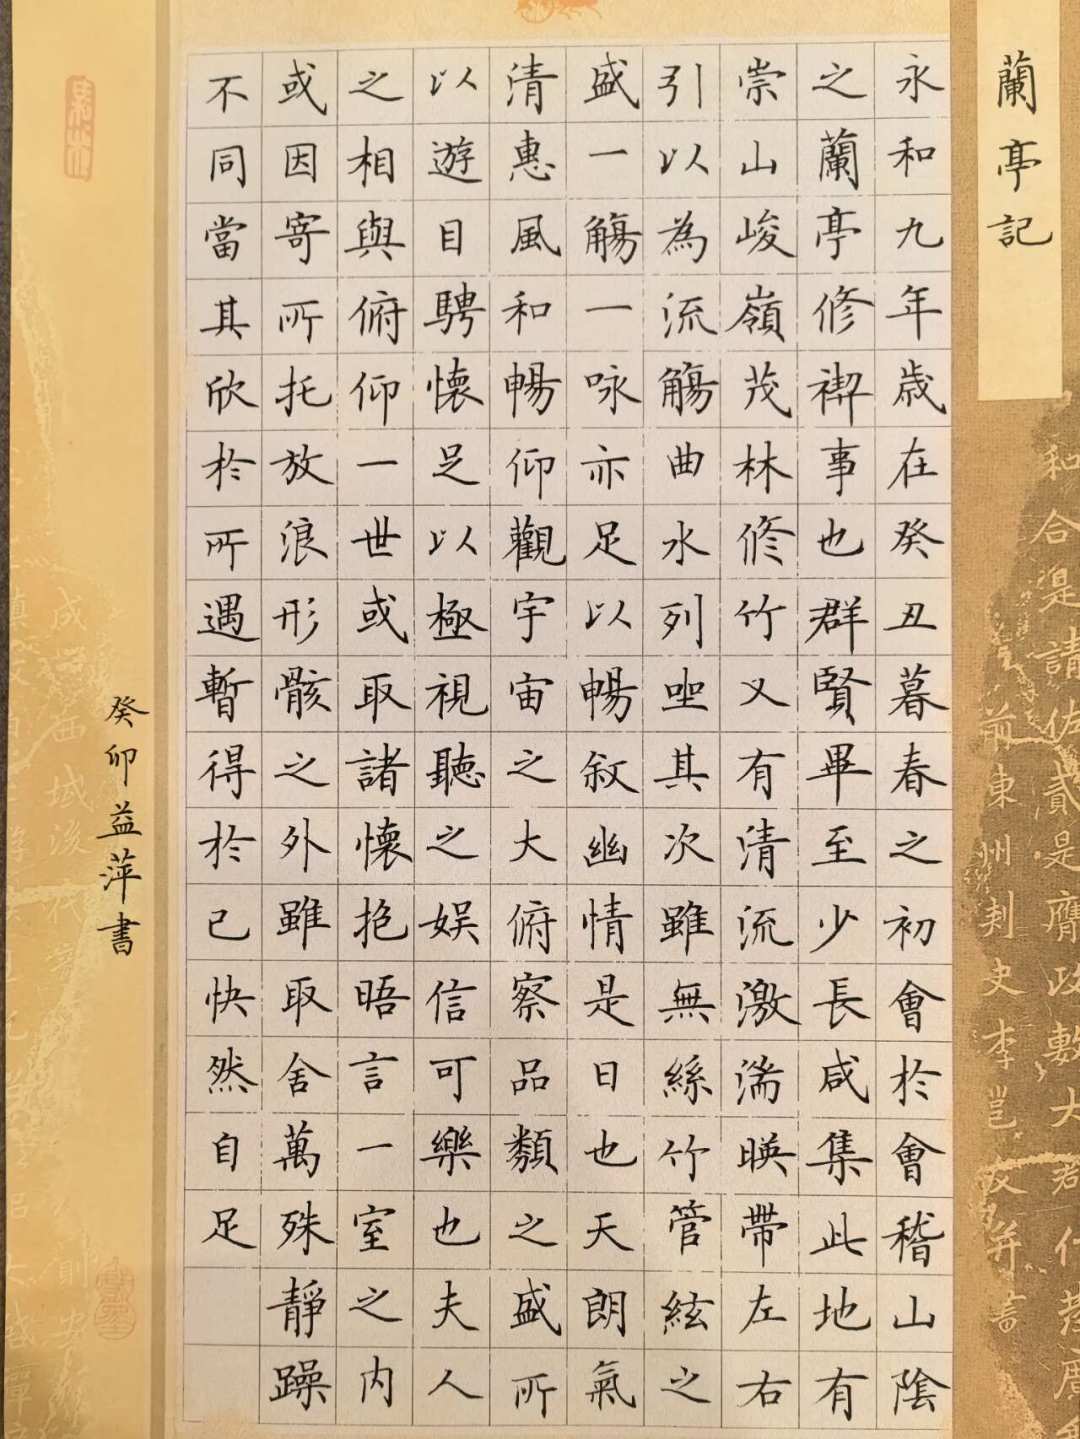 蘭亭記
永和九年歲在癸丑暮春之初會於會稽山陰
之蘭亭修禊事也群賢畢至少長咸集此地有
崇山峻嶺茂林修竹又有清流激湍暎帶左右
引以為流觴曲水列坐其次雖無絲竹管絃之
盛一觴一咏亦足以暢敘幽情是日也天朗氣
清惠風和暢仰觀宇宙之大俯察品類之盛所
以遊目騁懷足以極視聽之娛信可樂也夫人
之相與俯仰一世或取諸懷抱晤言一室之內
或因寄所托放浪形骸之外雖取舍萬殊靜躁
不同當其欣於所遇暫得於己快然自足
癸卯益萍書
和合湜請佐貳是膺政數大君仁孝廣
前東州刺史李岂